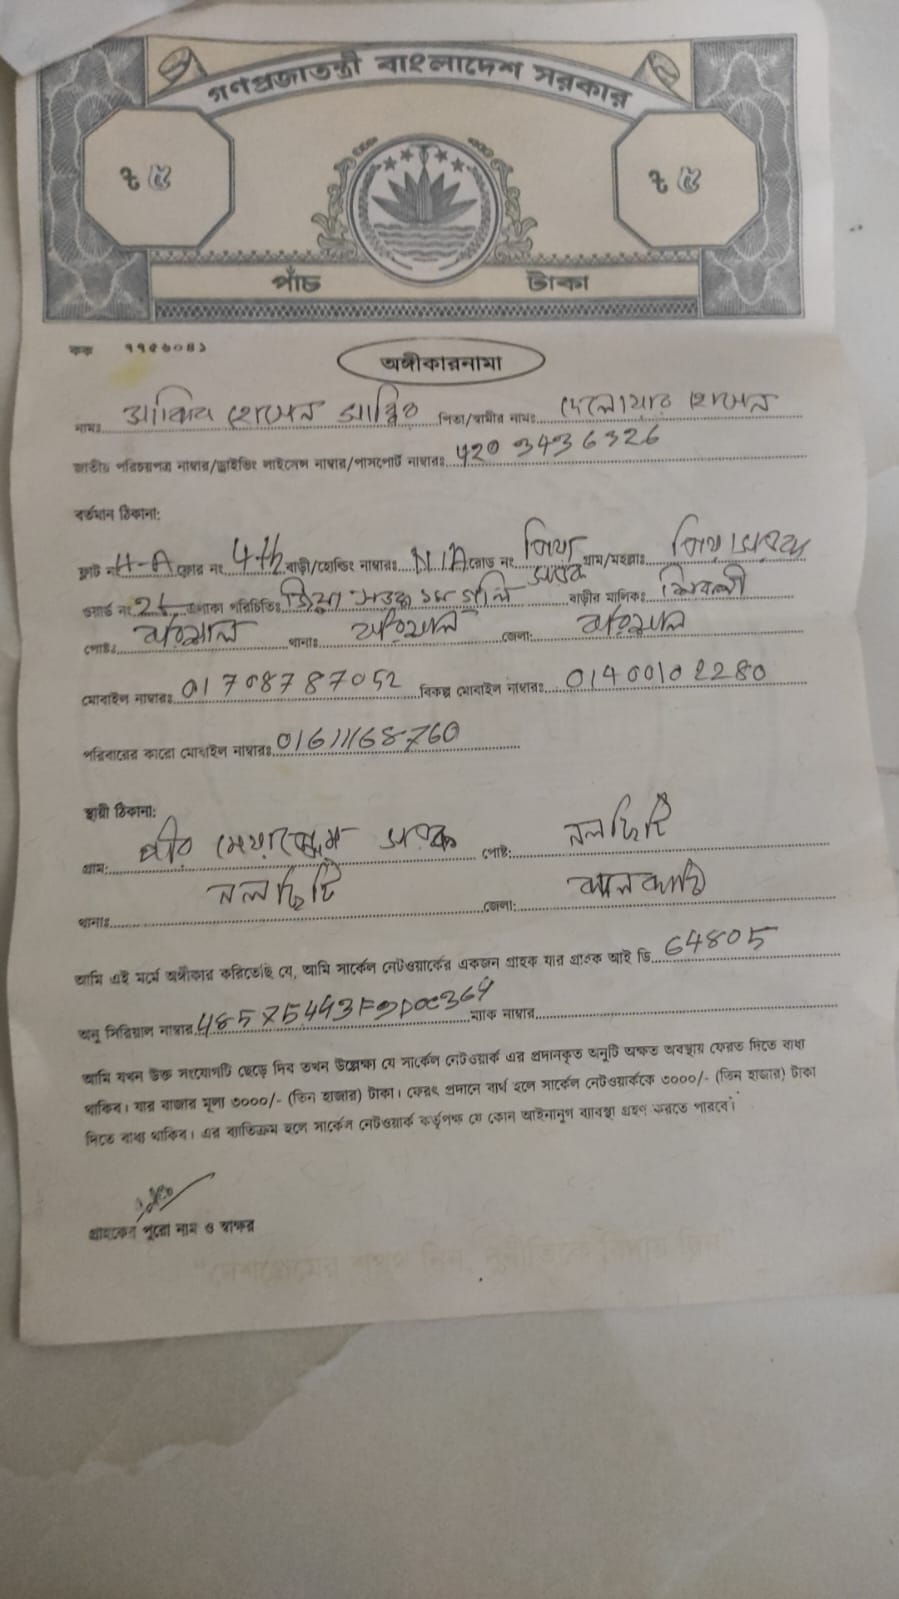 গণপ্রজাতন্ত্রী বাংলাদেশ সরকার
৳ ৫ ৳ ৫
পাঁচ টাকা
কক ৭৭৫৬০৪১
অঙ্গীকারনামা
নামঃ হোসেন পিতা/স্বামীর নামঃ দেলোয়ার হোসেন
জাতীয় পরিচয়পত্র নাম্বার/ড্রাইভিং লাইসেন্স নাম্বার/পাসপোর্ট নাম্বারঃ 420 3436326
বর্তমান ঠিকানা:
ফ্লাট নং H-A ফ্লোর নং 4th বাড়ী/হোল্ডিং নাম্বারঃ N/A রোড নং জিয়া সড়ক গ্রাম/মহল্লাঃ জিয়া সড়ক
ওয়ার্ড নং এলাকা পরিচিতিঃ জিয়া সড়ক ১ম গলি বাড়ীর মালিকঃ
পোষ্টঃ বরিশাল থানাঃ বরিশাল জেলা: বরিশাল
মোবাইল নাম্বারঃ 01708787052 বিকল্প মোবাইল নাম্বারঃ 01400102280
পরিবারের কারো মোবাইল নাম্বারঃ 01611168760
স্থায়ী ঠিকানা:
গ্রাম: সড়ক পোষ্ট: নলছিটি
থানাঃ নলছিটি জেলা: ঝালকাঠি
আমি এই মর্মে অঙ্গীকার করিতেছি যে, আমি সার্কেল নেটওয়ার্কের একজন গ্রাহক যার গ্রাহক আই ডি 64805
অনু সিরিয়াল নাম্বার ম্যাক নাম্বার
আমি যখন উক্ত সংযোগটি ছেড়ে দিব তখন উল্লেক্ষ্য যে সার্কেল নেটওয়ার্ক এর প্রদানকৃত অনুটি অক্ষত অবস্থায় ফেরত দিতে বাধ্য
থাকিব। যার বাজার মূল্য ৩০০০/- (তিন হাজার) টাকা। ফেরৎ প্রদানে ব্যর্থ হলে সার্কেল নেটওয়ার্ককে ৩০০০/- (তিন হাজার) টাকা
দিতে বাধ্য থাকিব। এর ব্যতিক্রম হলে সার্কেল নেটওয়ার্ক কর্তৃপক্ষ যে কোন আইনানুগ ব্যাবস্থা গ্রহণ করতে পারবে।
গ্রাহকের পুরো নাম ও স্বাক্ষর